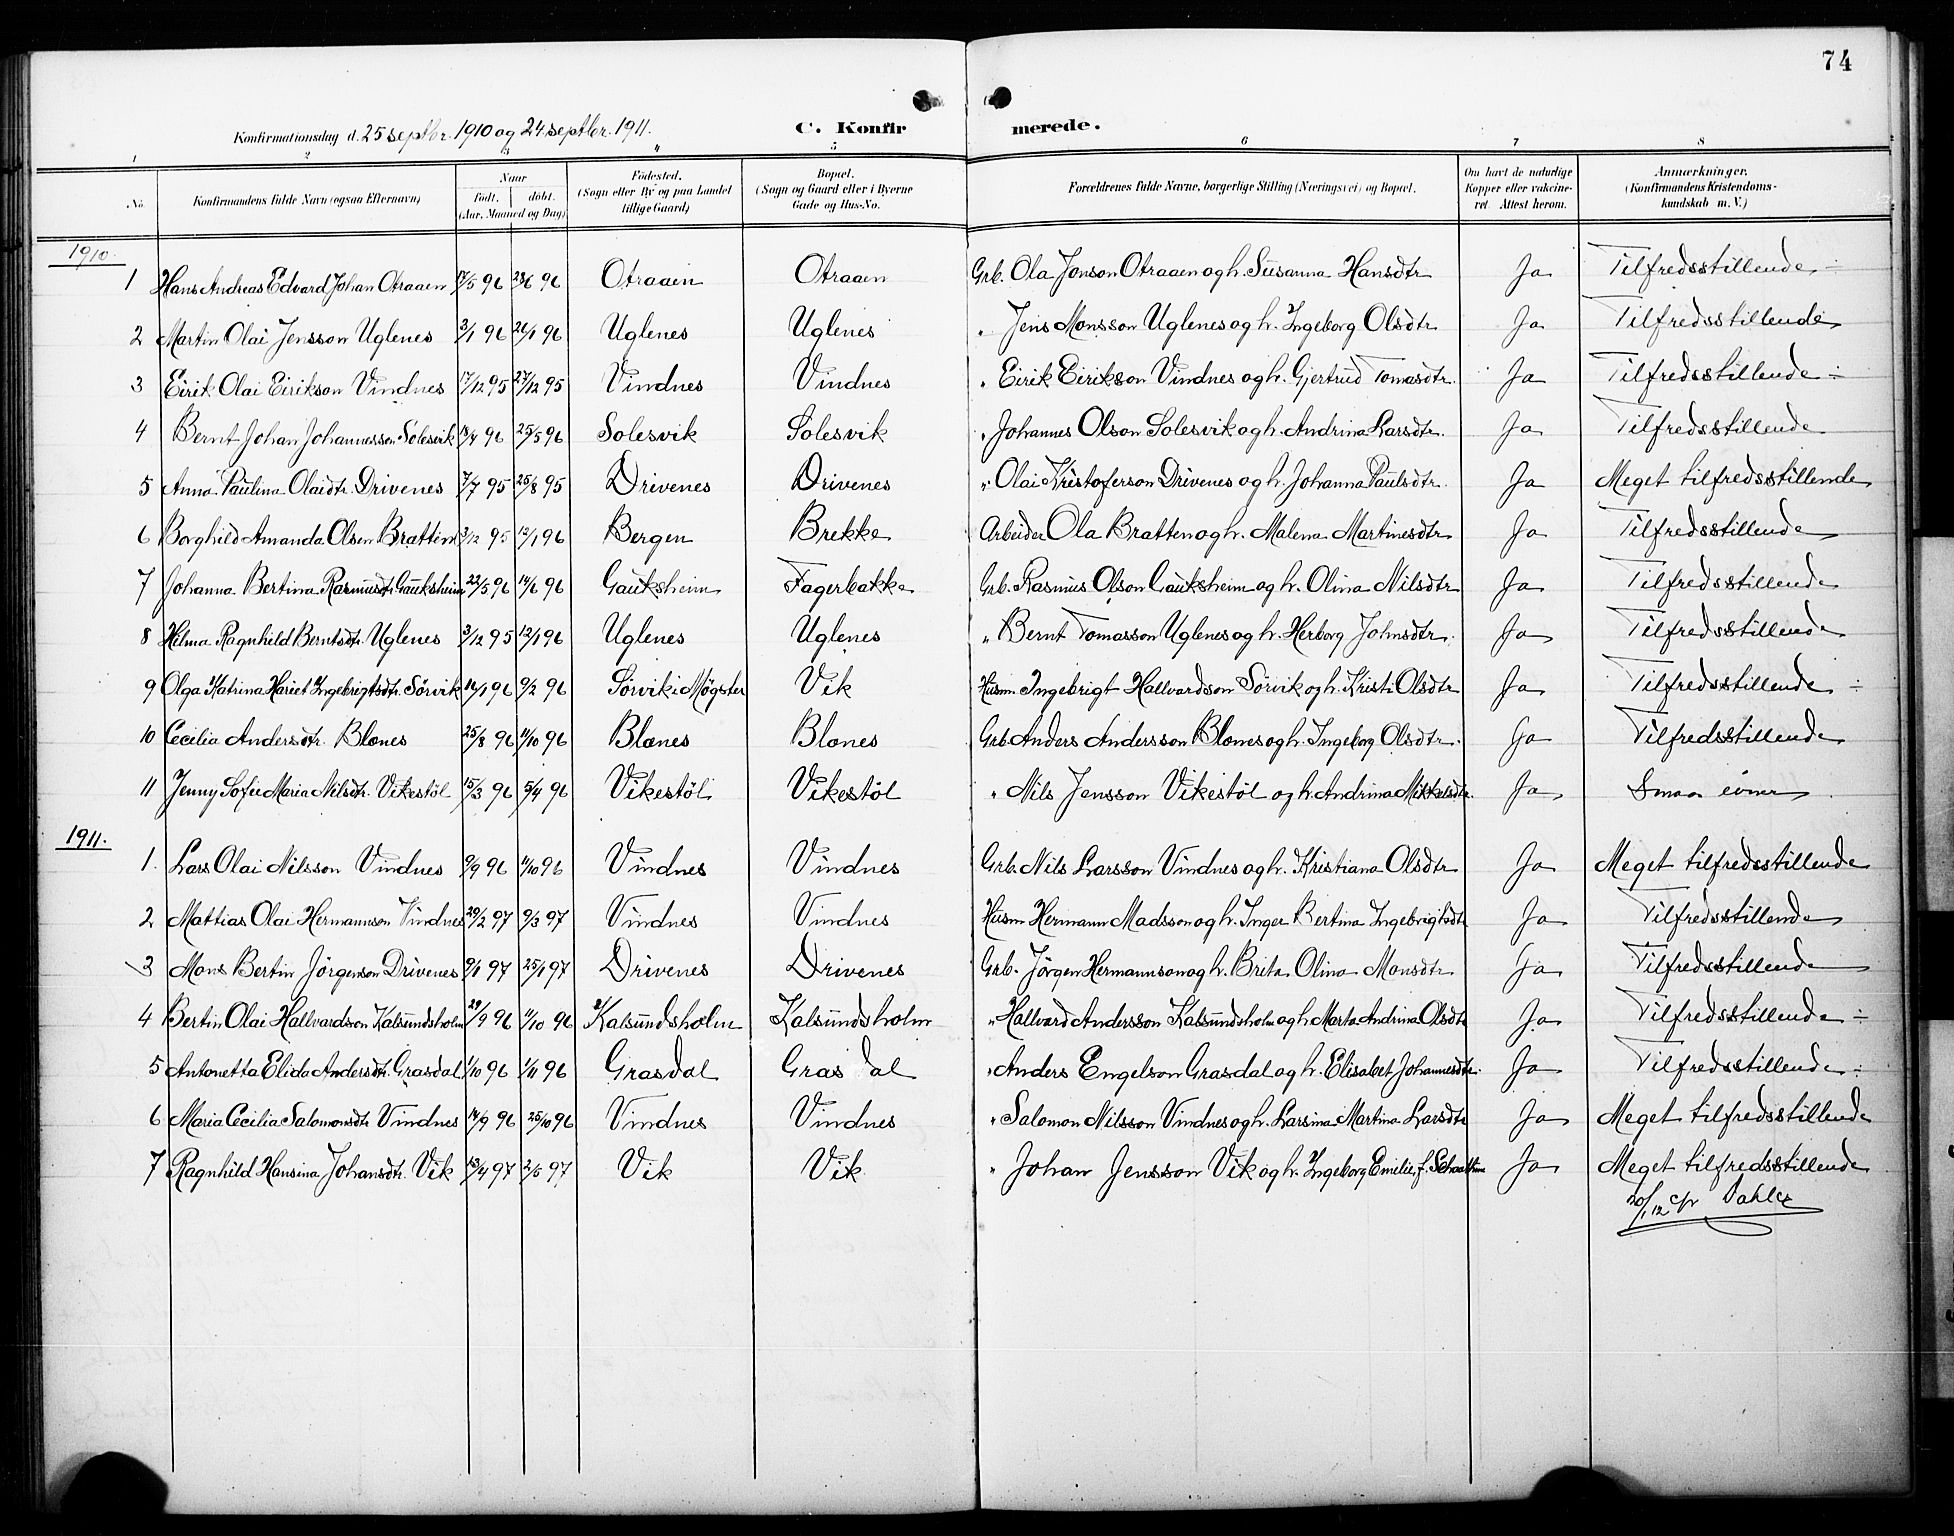 74
Konfirmationsdag d. 25 septbr. 1910 og 24 septbr. 1911. C. Konfirmerede.
1 2 3 4 5 6 7 8
No. Konfirmandens fulde Navn (ogsaa Efternavn) Naar født. døbt. (Aar, Maaned og Dag) Fødested. (Sogn eller By og paa Landet tillige Gaard) Bopæl. (Sogn og Gaard eller i Byerne Gade og Hus-No. Forældrenes fulde Navne, borgerlige Stilling (Næringsvei) og Bopæl. Om havt de naturlige Kopper eller vaccineret. Attest herom. Anmærkninger. (Konfirmandens Kristendomskundskab m. V.)
1910.
1 Hans Andreas Edvard Johan Otraaen 17/5 96 28/6 96 Otraaen Otraaen Grb. Ola Jonson Otraaen og h. Susanna Hansdtr Ja Tilfredsstillende ÷
2 Martin Olai Jensson Uglenes 3/1 96 26/1 96 Uglenes Uglenes " Jens Monsson Uglenes og h. Ingeborg Olsdtr Ja Tilfredsstillende
3 Eirik Olai Eirikson Vindnes 17/12 95 27/12 95 Vindnes Vindnes " Eirik Eirikson Vindnes og h. Gjertrud Tomasdtr. Ja Tilfredsstillende ÷
4 Bernt Johan Johannesson Solesvik 18/4 96 25/5 96 Solesvik Solesvik " Johannes Olson Solesvik og h. Andrina Larsdtr. Ja Tilfredsstillende
5 Anna Paulina Olaidtr. Drivenes 7/7 95 25/8 95 Drivenes Drivenes " Olai Kristoferson Drivenes og h. Johanna Paulsdtr. Ja Meget tilfredsstillende
6 Borghild Amanda Olsen Bratten 3/12 95 12/1 96 Bergen Brekke Arbeider Ola Bratten og h. Malena Martinesdtr Ja Tilfredsstillende
7 Johanna Bertina Rasmusdtr. Gauksheim 22/5 96 14/6 96 Gauksheim Fagerbakke Grb. Rasmus Olson Gauksheim og h. Olina Nilsdtr Ja Tilfredsstillende
8 Helma Ragnhild Berntsdtr. Uglenes 3/12 95 12/1 96 Uglenes Uglenes " Bernt Tomasson Uglenes og h. Herborg Johnsdtr. Ja Tilfredsstillende
9 Olga Katrina Hariet Ingebrigtsdtr. Sörvik 16/1 96 9/2 96 Sörvik i Møgster Vik Husm Ingebrigt Hallvardson Sörvik og h. Kristi Olsdtr Ja Tilfredsstillende ÷
10 Cecilia Andersdtr. Blones 25/8 96 11/10 96 Blones Blones Grb Anders Andersson Blones og h. Ingeborg Olsdtr. Ja Tilfredsstillende
11 Jenny Sofie Maria Nilsdtr. Vikestöl 15/3 96 5/4 96 Vikestöl Vikestöl " Nils Jensson Vikestöl og h. Andrina Mikkelsdtr. Ja Smaa evner
1911.
1. Lars Olai Nilsson Vindnes 9/9 96 11/10 96 Vindnes Vindnes Grb. Nils Larsson Vindnes og h. Kristiana Olsdtr Ja Meget tilfredsstillende
2 Mattias Olai Hermannson Vindnes 20/2 97 9/3 97 Vindnes Vindnes Husm Hermann Madsson og h. Inger Bertina Ingebrigtsdtr Ja Tilfredsstillende
3 Mons Bertin Jörgenson Drivenes 9/1 97 25/1 97 Drivenes Drivenes Grb. Jörgen Hermannson og h. Brita Olina Monsdtr Ja Tilfredsstillende
4 Bertin Olai Hallvardson Kalsundsholm 29/9 96 11/10 96 Kalsundsholm Kalsundsholm " Hallvard Andersson Kalsundsholm og h. Marta Andrina Olsdtr Ja Tilfredsstillende ÷
5 Antonetta Elida Andersdtr. Grasdal 1/10 96 1/11 96 Grasdal Grasdal " Anders Engelson Grasdal og h. Elisabet Johannesdtr. Ja Tilfredsstillende ÷
6 Maria Cecilia Salomonsdtr Vindnes 14/9 96 25/10 96 Vindnes Vindnes " Salomon Nilsson Vindnes og h. Larsina Martina Larsdtr Ja Meget tilfredsstillende
7 Ragnhild Hansina Johansdtr. Vik 13/4 97 2/5 97 Vik Vik " Johan Jensson Vik og h. Ingeborg Emilie f. Ja Meget tilfredsstillende